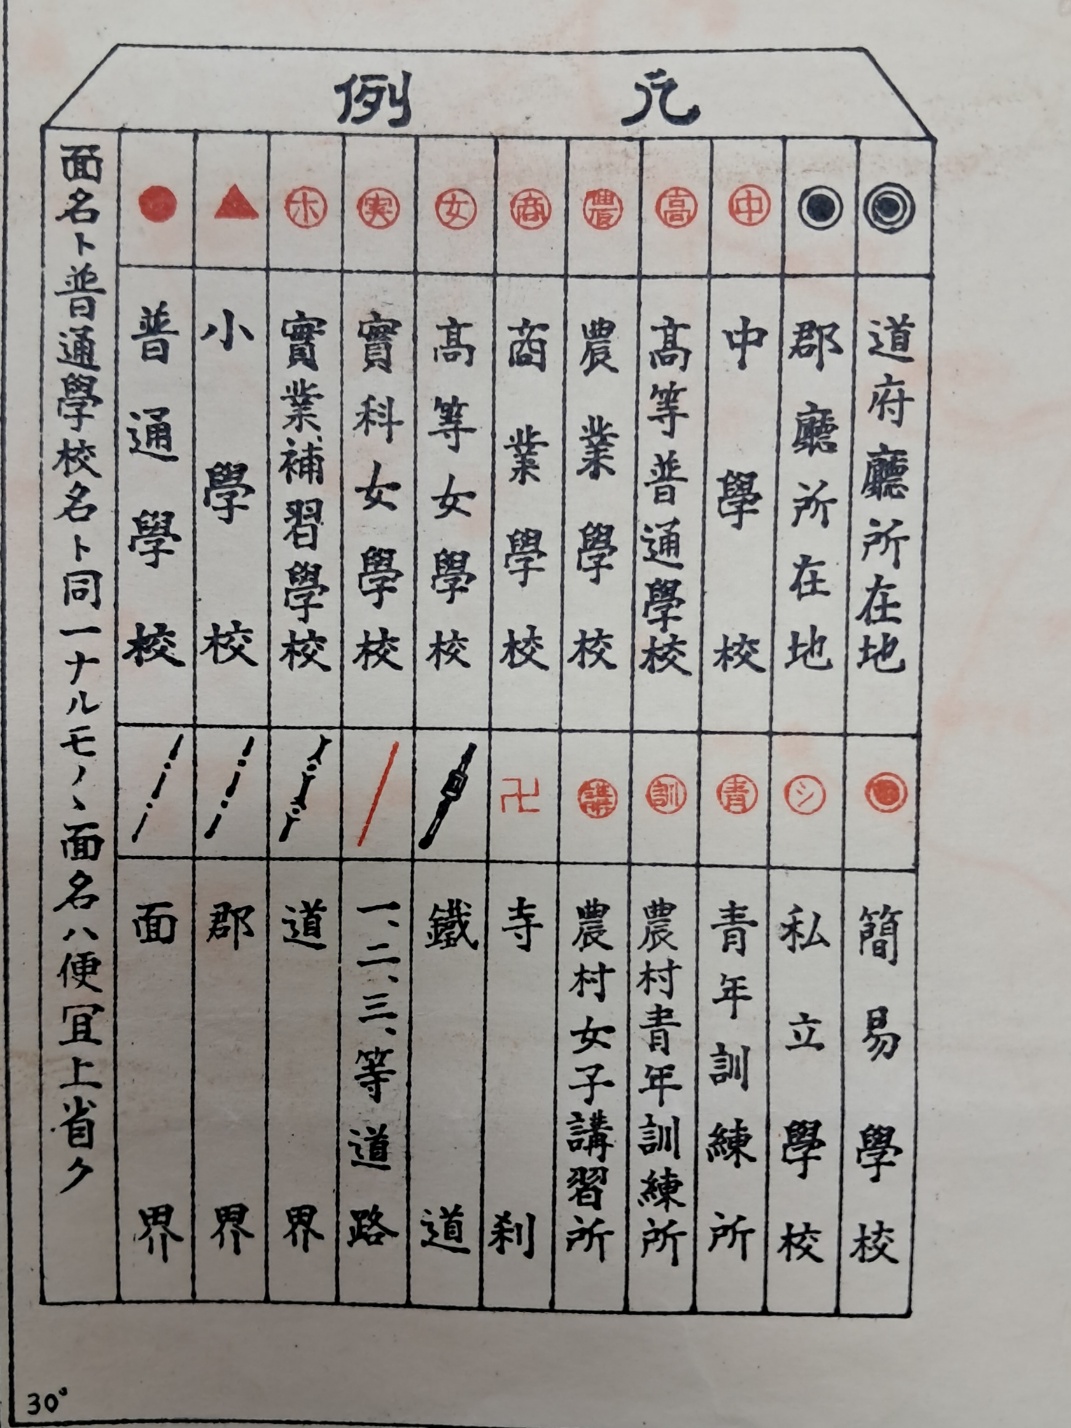 凡例
道府廳所在地
郡廳所在地
中 中學校
高 高等普通學校
農 農業學校
商 商業學校
女 高等女學校
実 實科女學校
ホ 實業補習學校
小學校
普通學校
簡易學校
シ 私立學校
青 青年訓練所
訓 農村青年訓練所
講 農村女子講習所
卍 寺刹
鐵道
一、二、三、等道路
道界
郡界
面界
面名ト普通學校名ト同一ナルモノヽ面名ハ便冝上省ク
30'